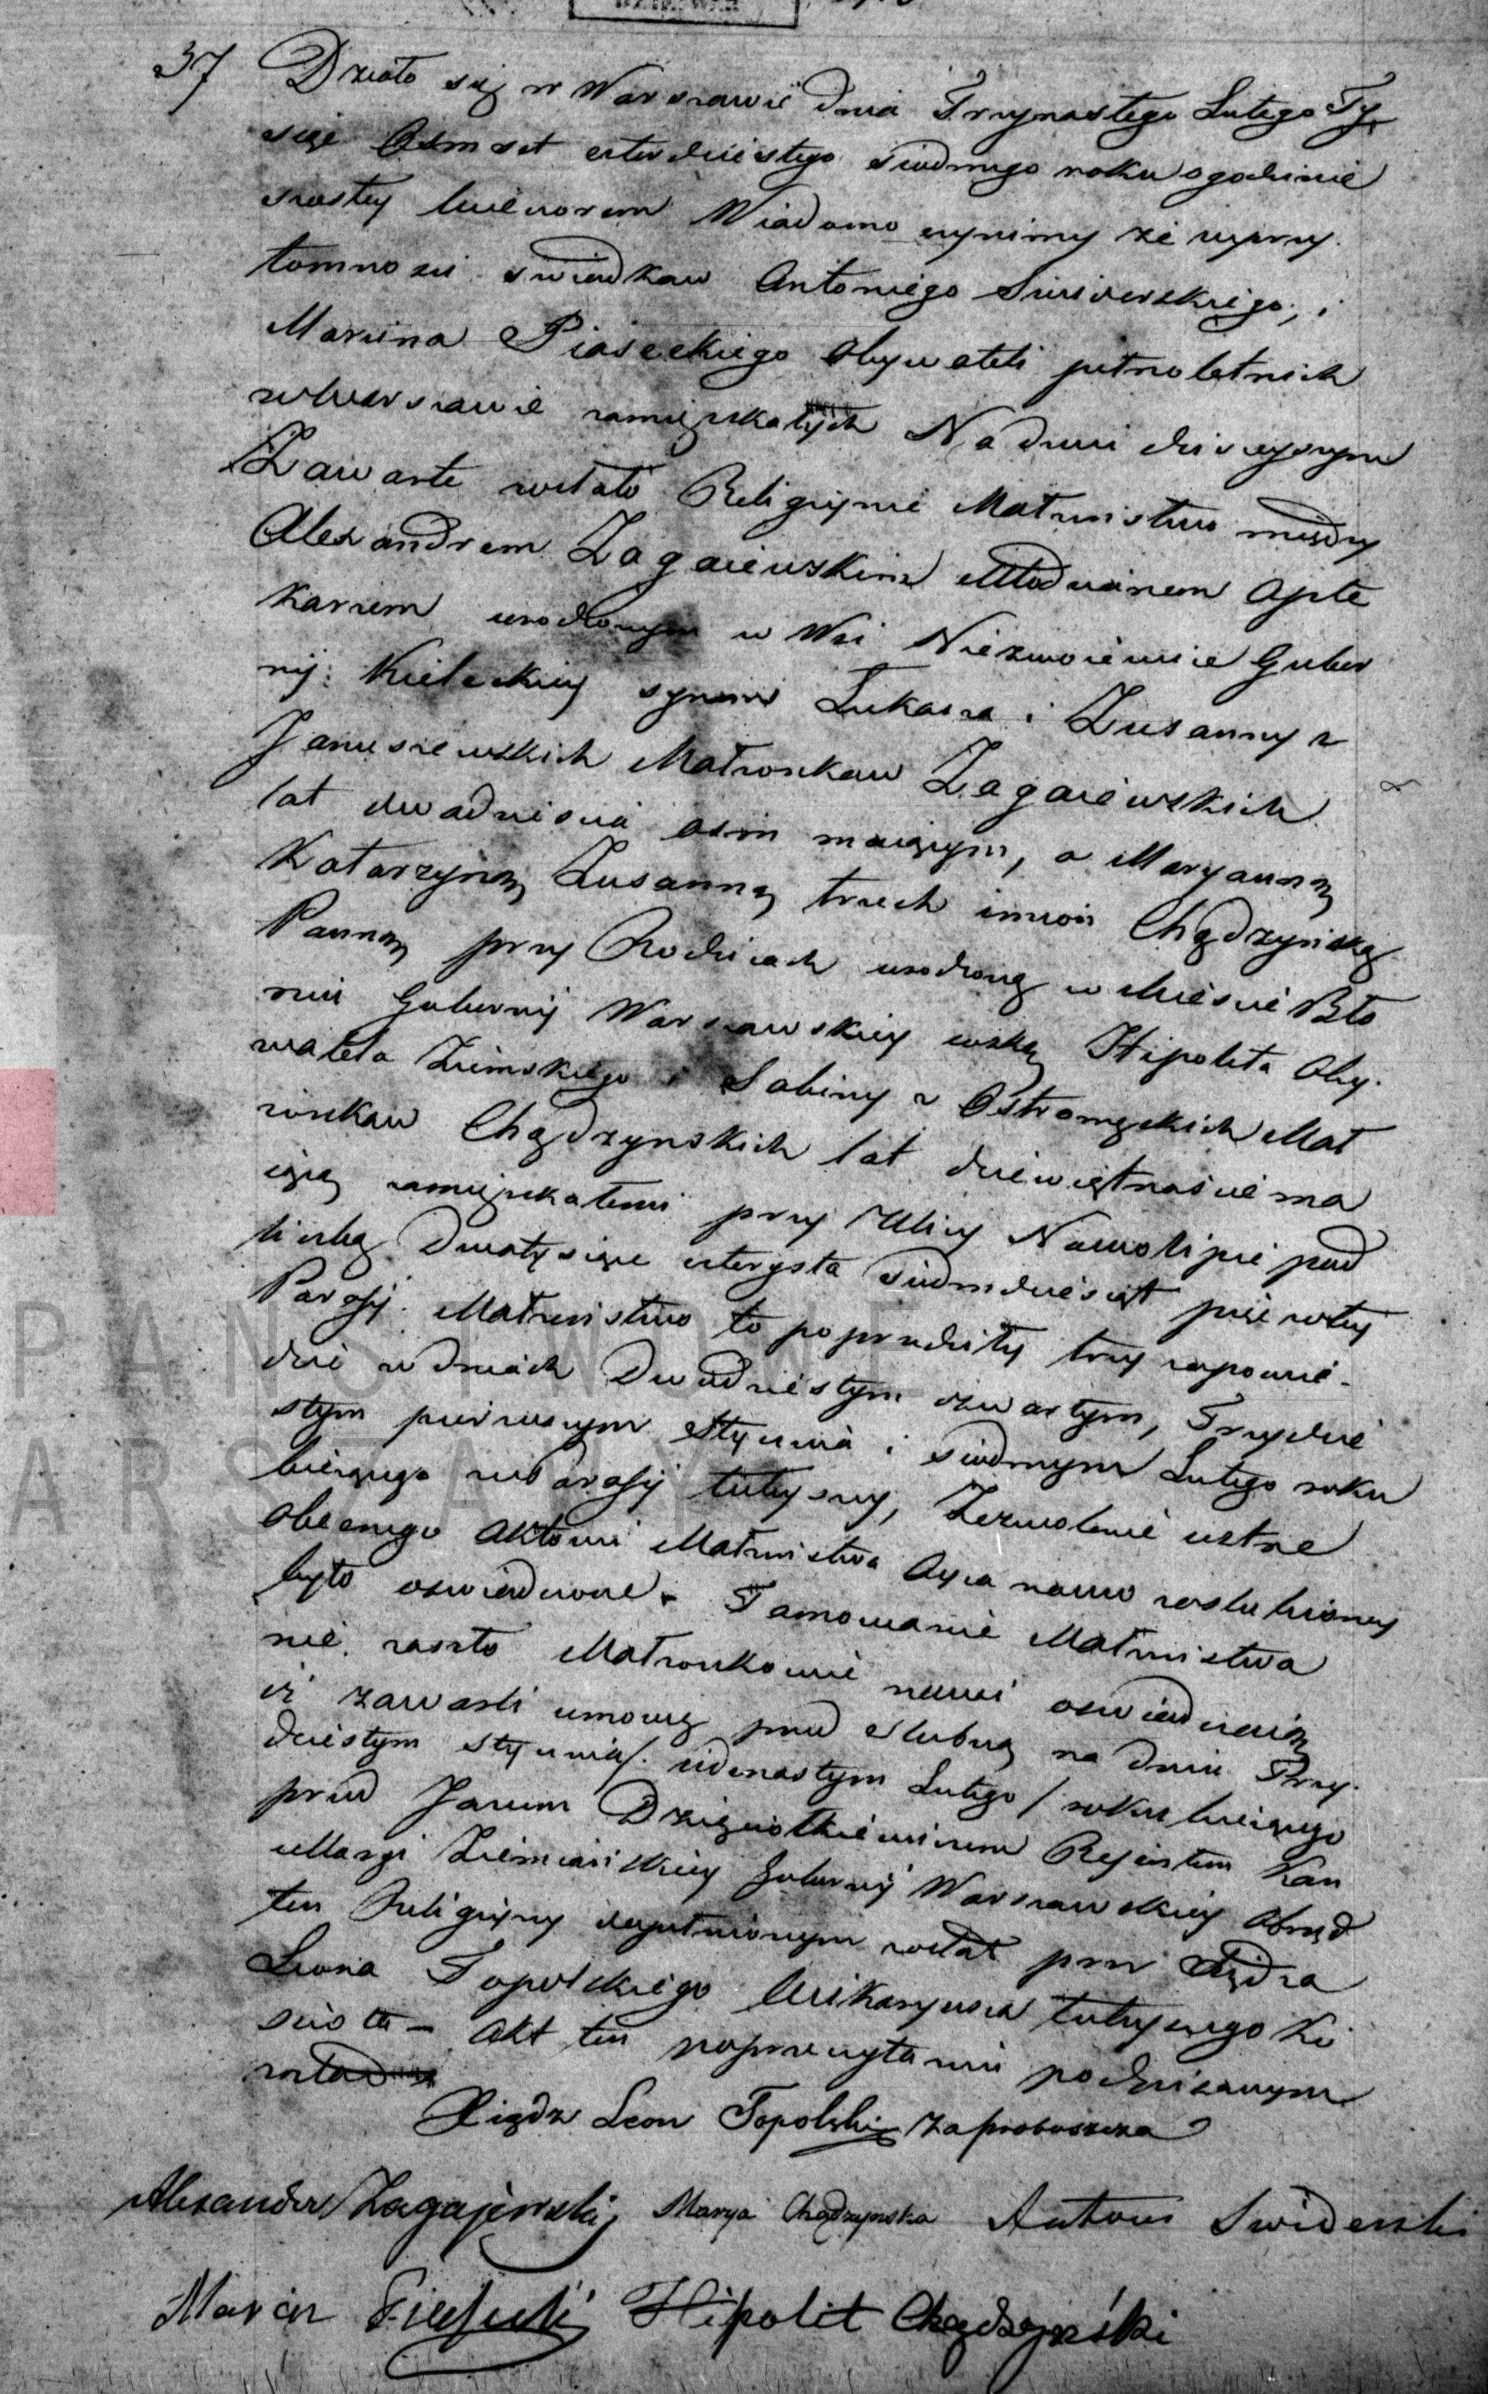 37 Działo się w Warszawie dnia Trzynastego Lutego Ty
siąc Osmset czterdziestego siodmego roku o godzinie
szostey wieczorem Wiadomo czynimy że wprzy
tomnosci swiadkow Antoniego Swiderskiego, i
Marcina Piaseckiego Obywateli pełnoletnich
w Warszawie zamięszkałych Na dniu dzisieyszym
Zawarte zostało Religiynie Małżenstwo między
Alexandrem Zagaiewskim Młodzianem Apte
karzem urodzonym w Wsi Niezwoiewie Guber
nij Kieleckiey synem Łukasza i Zusanny z
Januszewskich Małżonkow Zagaiewskich
lat dwadziescia osm maiącym, a Maryanną
Katarzyną Zusanną trzech imion Chądzyńską
Panną przy Rodzicach urodzoną w Miescie Bło
niu Gubernij Warszawskiey corką Hipolita Oby
watela Ziemskiego i Sabiny z Ostromęckich Mał
żonkow Chądzynskich lat dziewiętnaście ma
iącą zamięszkałemi przy Ulicy Nowolipie pod
liczbą Dwatysiące czterysta siedmdziesiąt pięć w tey
Parafij. Małżenstwo to poprzedziły trzy zapowie-
dzie w dniach Dwudziestym czwartym, Trzydzie
stym pierwszym Stycznia i siodmym Lutego roku
bieżącego w Parafij tuteyszey, Zezwolenie ustne
obecnego Aktowi Małżenstwa Oyca nowo zaslubioney
było oswiadczone. Tamowanie Małżenstwa
nie zaszło Małżonkowie nowi oswiadczaią
iż zawarli umowę przed slubną na dniu Trzy-
dziestym Stycznia/ iedenastym Lutego/ roku bieżącego
przed Janem Rejentem Kan
cellaryi Ziemiańskiey Gubernij Warszawskiey Obrząd
ten Religiyny dopełnionym został przez Xiędza
Leona Topolskiego Wikaryusza tuteyszego Ko
scioła - Akt ten po przeczytaniu podpisanym
został
Xiądz Leon Topolski za proboszcza
Alexander Zagajewski Marya Chądzyńska Antoni Swiderski
Marcin Piasecki Hipolit Chądzyński